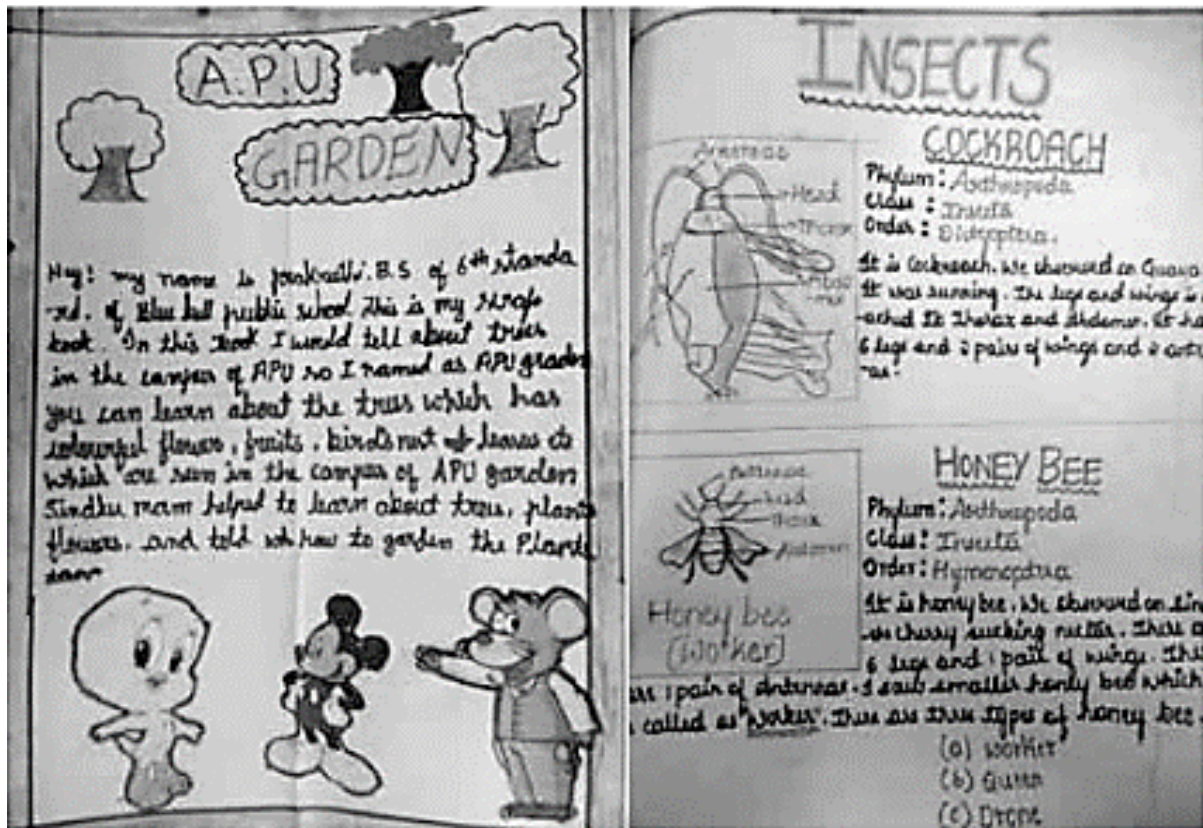 A.P.U
GARDEN
Hey! my name is B.S of 6th standa
-rd. of Blue bell public school This is my scrap
book. In this book I would tell about trees
in the campus of APU so I named as APU
you can learn about the trees which has
colourful flowers, fruits, birds nest leaves etc
which are seen in the campus of APU garden
Sindhu mam helped to learn about trees, plants
flowers. and told how to garden the Plants
INSECTS
COCKROACH
Antennae
Head
Thorax
Phylum: Arthropoda
Class: Insecta
Order:
It is Cockroach. We observed on Guava
It was running. The legs and wings is
-ached It Thorax and Abdomen. It ha
6 legs and 2 pairs of wings and 2
HONEY BEE
Antennae
Head
Thorax
Abdomen
Honey bee
(Worker)
Phylum: Arthropoda
Class: Insecta
Order:
It is honey bee. We observed on
cherry sucking There a
6 legs and 1 pair of wings.
are 1 pair of Antennae. I saw smaller honey bee which
called as "worker". There are three types of honey bee
(a) Worker
(b) Queen
(c) Drone